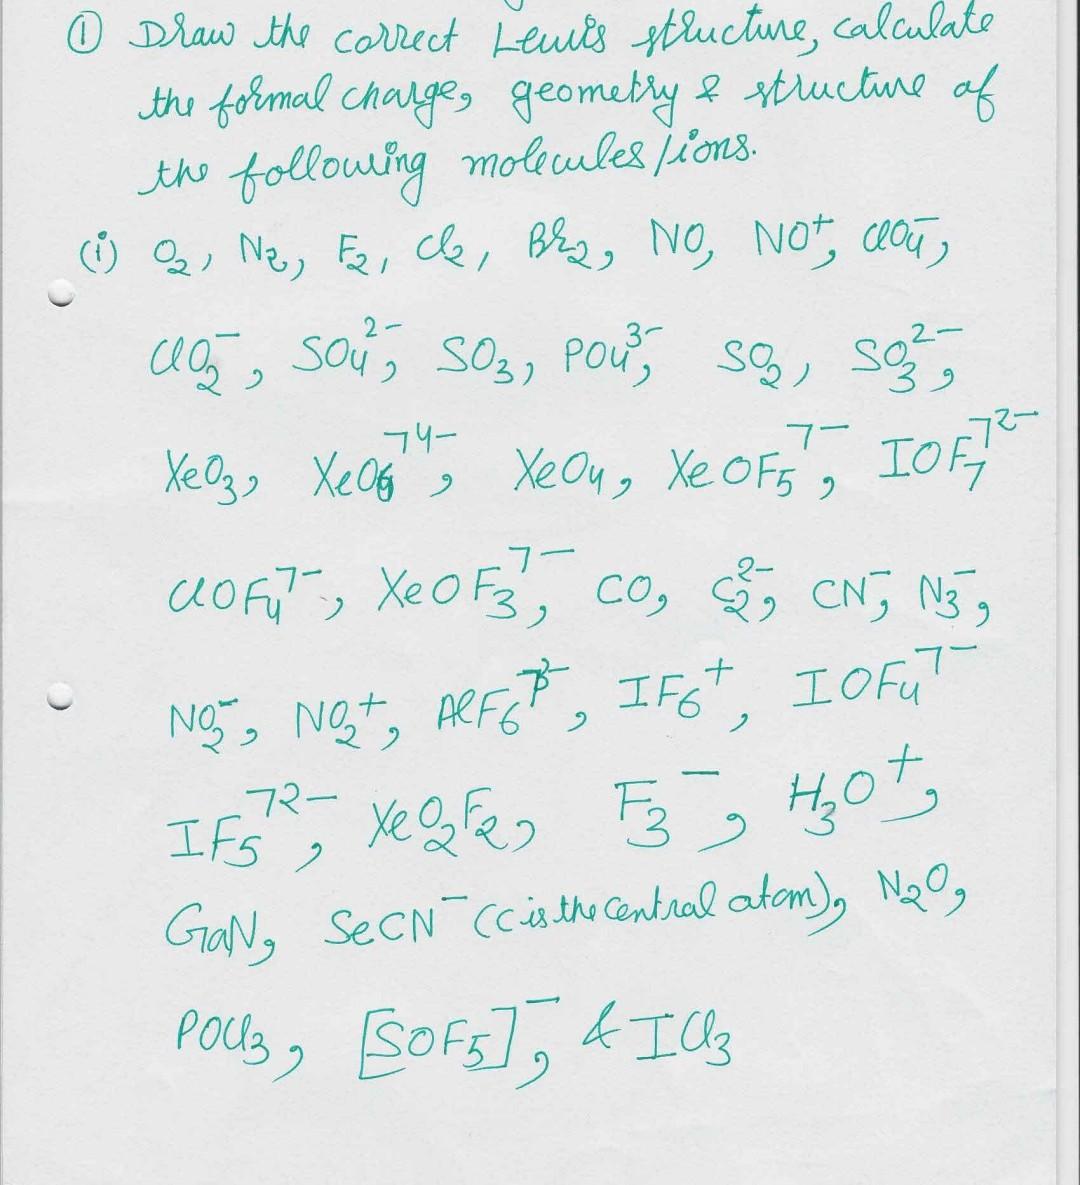 ① Draw the correct Lewis structure, calculate
the formal charge, geometry & structure of
the following molecules/ions.
(i) O₂, N₂, F₂, Cl₂, Br₂, NO, NO⁺, ClO₄⁻,
ClO₂⁻, SO₄²⁻, SO₃, PO₄³⁻, SO₂, SO₃²⁻,
XeO₃, XeO₆⁷⁴⁻, XeO₄, XeOF₅⁷⁻, IOF₇⁷²⁻
ClOF₄⁷⁻, XeOF₃⁷⁻, CO, C₂²⁻, CN⁻, N₃⁻,
NO₂⁻, NO₂⁺, AlF₆⁷³⁻, IF₆⁺, IOF₄⁷⁻
IF₅⁷²⁻, XeO₂F₂, F₃⁻, H₃O⁺,
GaN, SeCN⁻ (C is the central atom), N₂O,
POCl₃, [SOF₅]⁻, & ICl₃